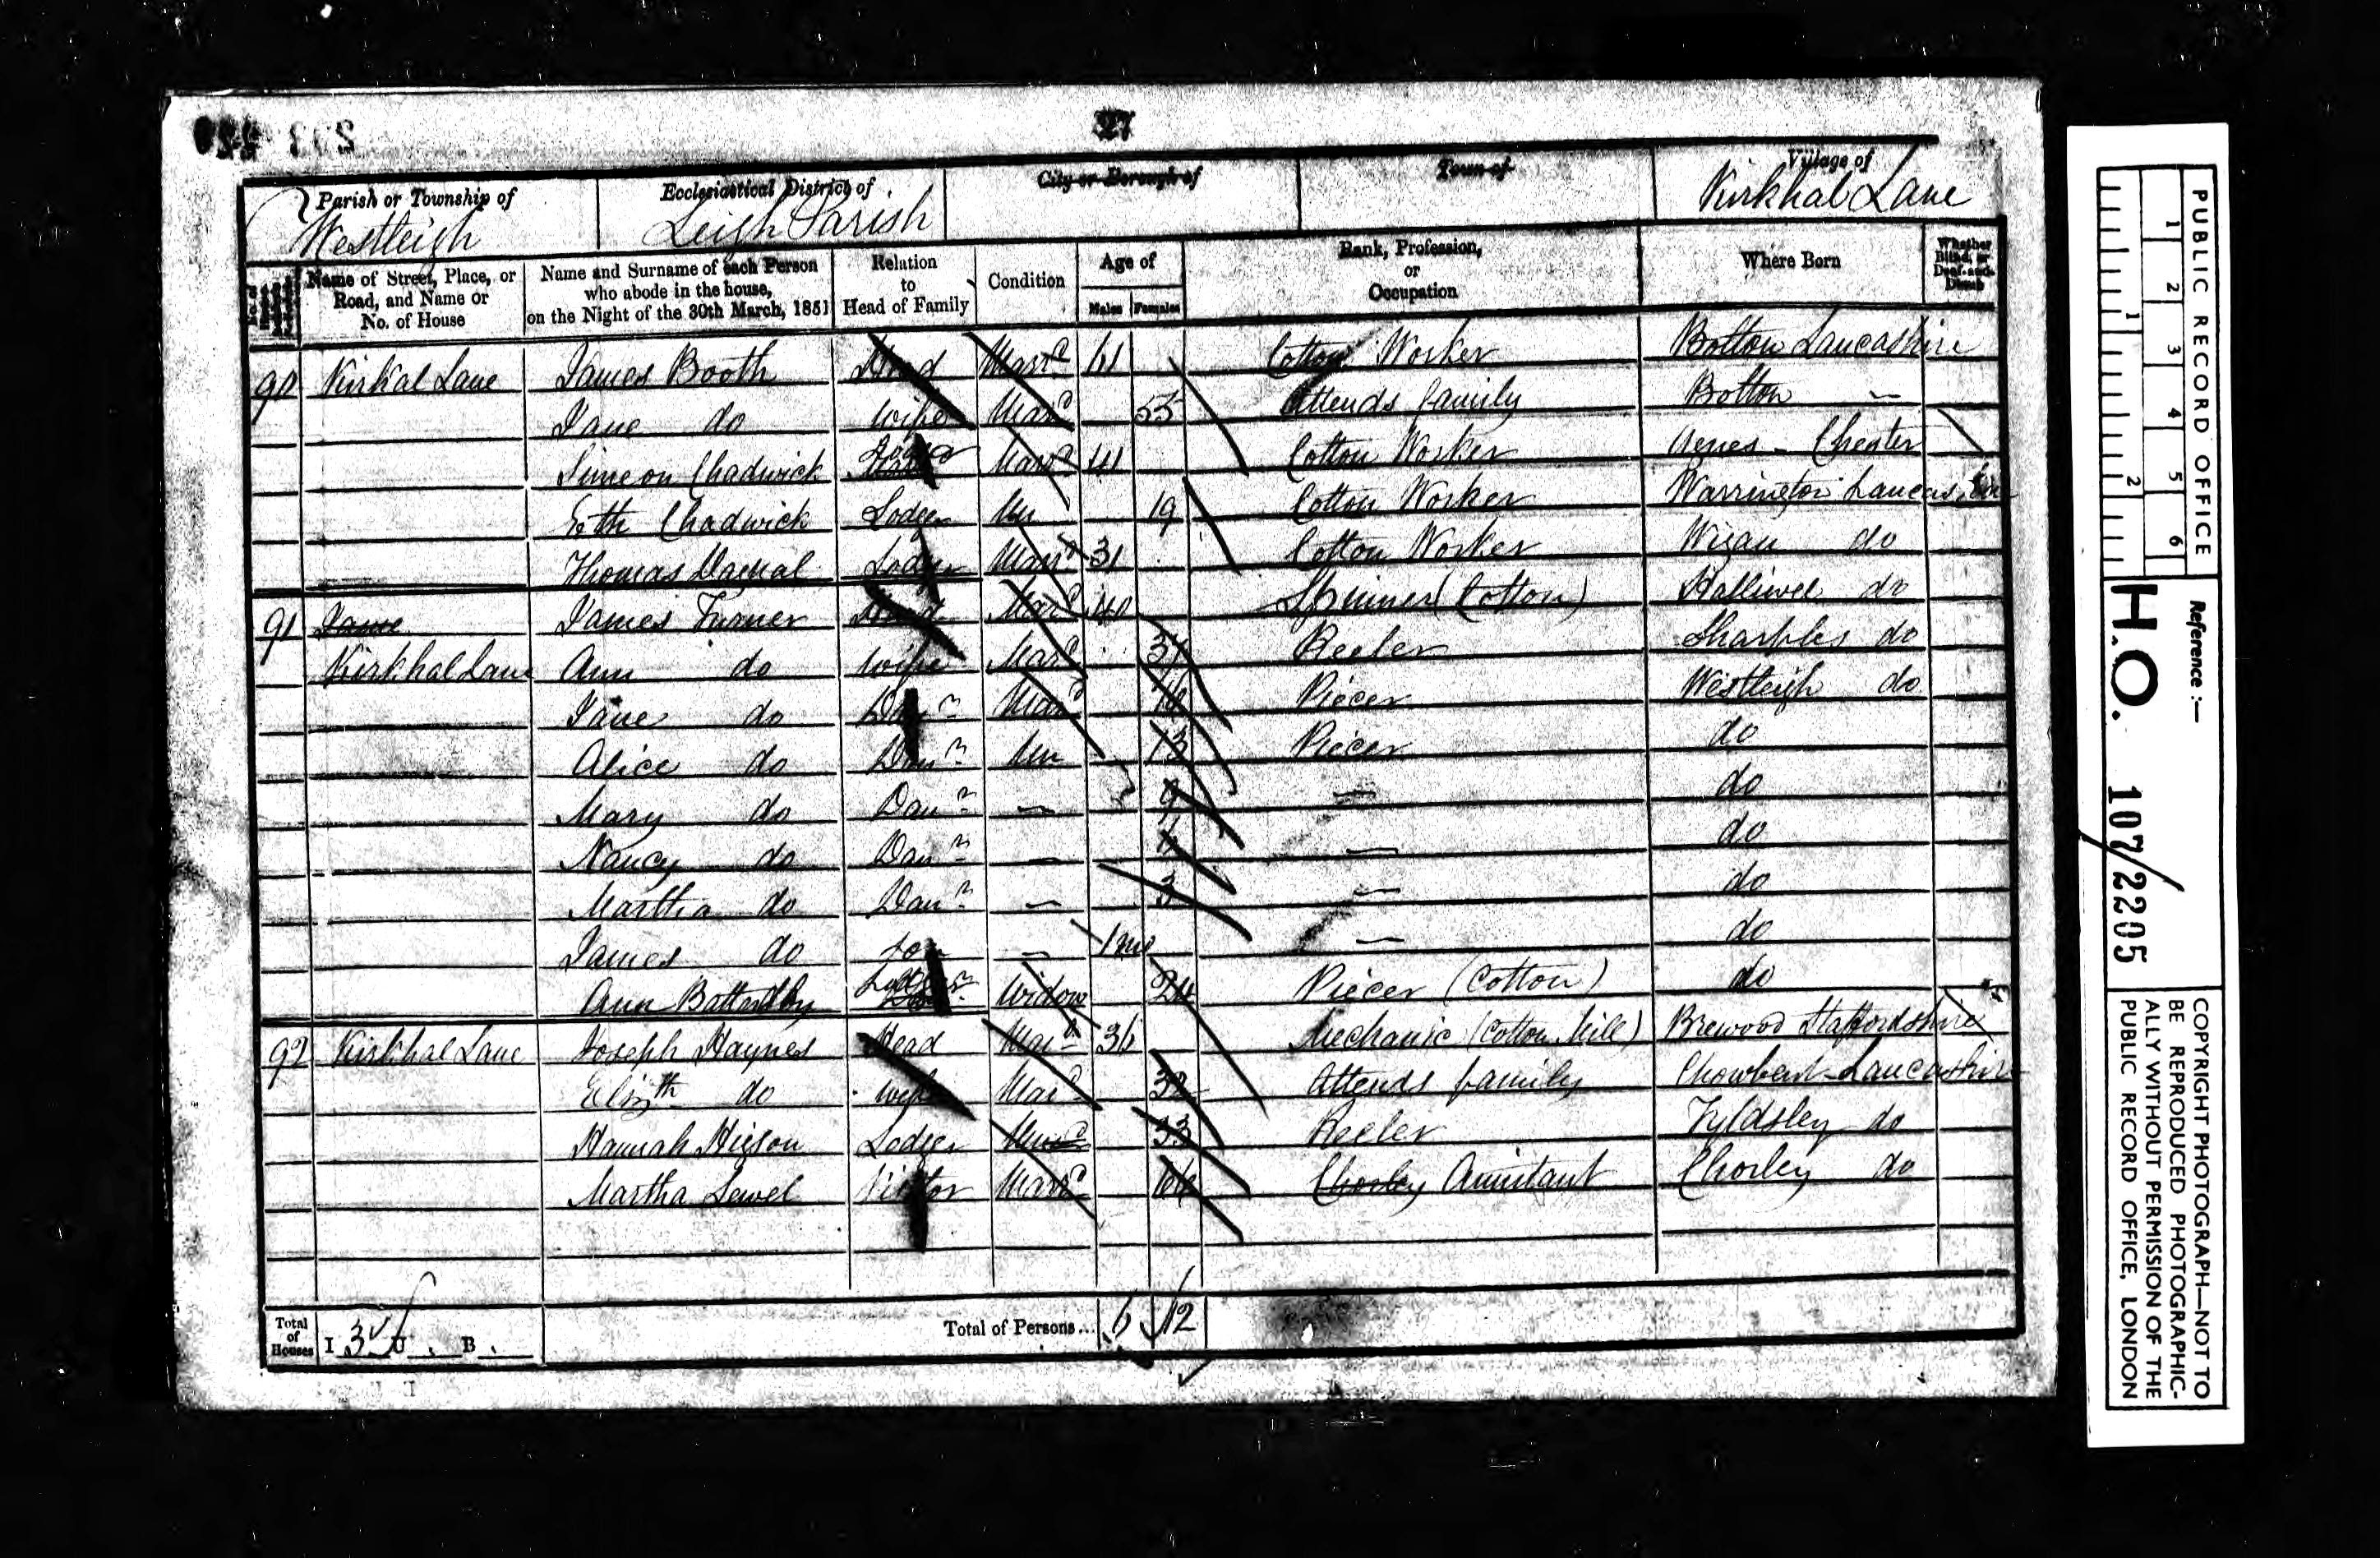 27
Parish or Township of
Westleigh
Ecclesiastical District of
Leigh Parish
City or Borough of
Town of
Village of
Kirkhal Lane
Name of Street, Place, or Road, and Name or No. of House
Name and Surname of each Person who abode in the house, on the Night of the 30th March, 1851
Relation to Head of Family
Condition
Age of
Males Females
Rank, Profession, or Occupation
Where Born
Whether Blind, or Deaf-and-Dumb
90 Kirkal Lane James Booth Head Marrd 61 Cotton Worker Bolton Lancashire
Jane do Wife Marrd 55 Attends family Bolton
Simeon Chadwick Lodger Marrd 41 Cotton Worker Chester
Eth Chadwick Lodger Un 19 Cotton Worker Warrington Lancashire
Thomas Lodger Marrd 31 Cotton Worker Wigan do
91 James Turner Head Marrd 40 Spinner (Cotton) Halliwel do
Kirkhal Lane Ann do Wife Marrd 37 Reeler Sharples do
Jane do Daur Marrd 16 Piecer Westleigh do
Alice do Daur Un 13 Piecer do
Mary do Daur — 9 — do
Nancy do Daur — — do
Martha do Daur — 3 — do
James do Son — 1 mo — do
Ann Battersby Widow 24 Piecer (Cotton) do
92 Kirkhal Lane Joseph Haynes Head Mard 36 Mechanic (Cotton Mill) Brewood Staffordshire
Elizth do Wife Mard 32 Attends family Chowbent Lancashire
Hannah Higson Lodger 33 Reeler Tyldsley do
Martha Sewel Visitor Marrd 64 Chorley Annitant Chorley do
Total of Houses I 3 U B
Total of Persons... 6 12
PUBLIC RECORD OFFICE
1 2 3 4 5 6
1 2
Reference :—
H.O. 107/2205
COPYRIGHT PHOTOGRAPH—NOT TO
BE REPRODUCED PHOTOGRAPHIC-
ALLY WITHOUT PERMISSION OF THE
PUBLIC RECORD OFFICE, LONDON